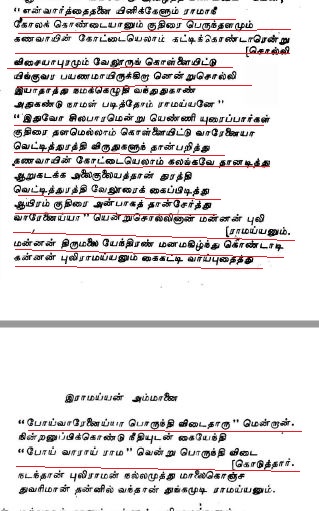 "என்வார்த்தைதனை யினிக்கேளும் ராமாகீ
கோலக் கொண்டையானும் குதிரை பெருந்தளமும்
கணவாயின் கோட்டையெலாம் கட்டிக்கொண்டாரென்று
[சொல்லி
விசையாபுரமும் வேலூருங் கொள்ளையிட்டு
யிங்குவர பயணமாயிருக்கிற னென்றுசொல்லி
இயாதாத்து நமக்கெழுதி வந்ததுகாண்
அதகண்டு நாமள் படித்தோம் ராமய்யனே"
"இதுவோ சிலபாரமென்று யெண்ணி யுரைப்பார்கள்
குதிரை தளமெல்லாம் கொள்ளையிட்டு வாரேனையா
வெட்டித்துரத்தி விருதுகளுந் தான்பறித்து
தணவாயின் கோட்டையெலாம் கலங்கவே தானடித்து
ஆறுகடக்க அலைகுலையத்தான் துரத்தி
வெட்டித்துரத்தி வேலூரைக் கைப்பிடித்து
ஆயிரம் குதிரை அன்பாகத் தான்சேர்த்து
வாரேனைய்யா" யென்றுசொல்லினான் மன்னன் புலி
[ராமய்யனும்.
மன்னன் திருமலை யேந்திரன் மனமகிழ்ந்து கொண்டாடி
கன்னன் புலிராமய்யனும் கைகட்டி வாய்புதைத்து
இராமய்யன் அம்மானை
"போய்வாரேனைய்யா பொருந்தி விடைதாரு" மென்றான்.
கின்றனுப்பிக்கொண்டு நீதியுடன் கையேந்தி
"போய் வாராய் ராம" வென்று பொருந்தி விடை
[கொடுத்தார்.
நடந்தான் புலிராமன் நல்லமுத்து மாலைகொஞ்ச
துவரிமான் தன்னில் வந்தான் துங்கமுடி ராமய்யனும்.